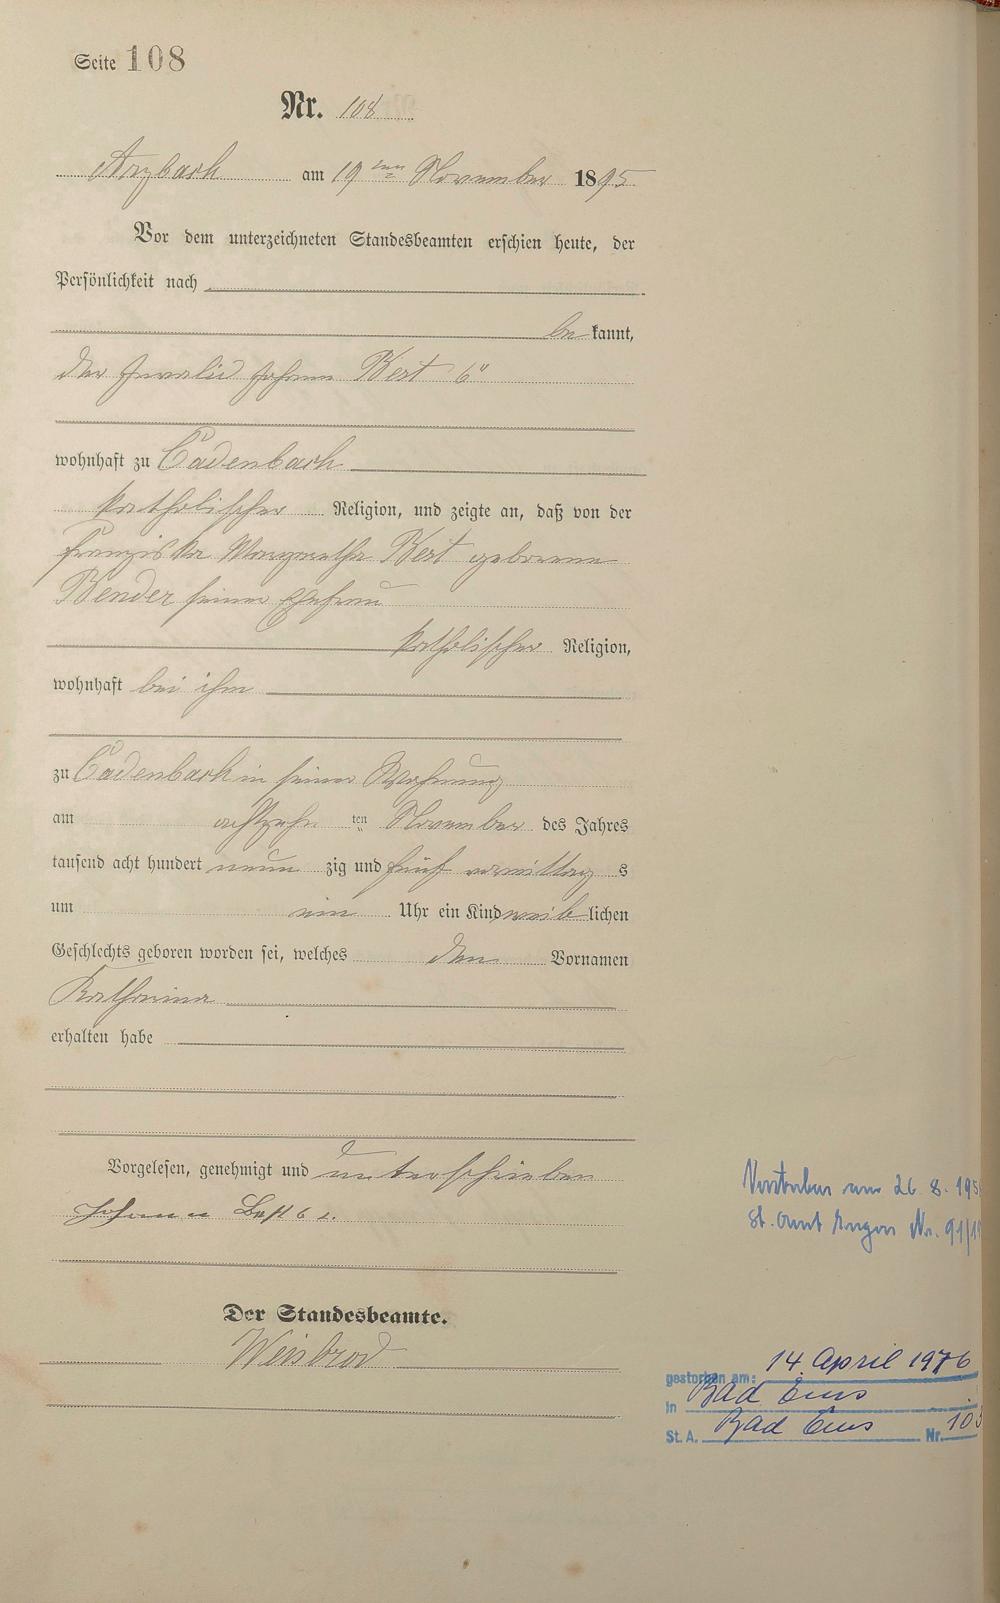 Seite 108
Nr. 108
Arzbach am 19ten November 1895
Vor dem unterzeichneten Standesbeamten erschien heute, der
Persönlichkeit nach
be kannt,
der Invalid Johann Bert 6r
wohnhaft zu Cadenbach
katholischer Religion, und zeigte an, daß von der
Franziska Margaretha Bert geborene
Bender seiner Ehefrau
katholischer Religion,
wohnhaft bei ihm
zu Cadenbach in seiner Wohnung
am achtzehn ten November des Jahres
tausend acht hundert neun zig und fünf vormittag s
um ein Uhr ein Kind weib lichen
Geschlechts geboren worden sei, welches den Vornamen
Katharina
erhalten habe
Vorgelesen, genehmigt und unterschrieben
Johann 6
Der Standesbeamte.
Weisbrod
am 26.8.195
St. Amt Nr. 91/1
gestorben am: 14. April 1976
in Bad Ems
St. A. Bad Ems Nr. 103